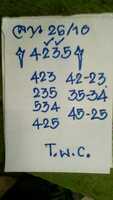 26/10
4235
423 42-23
235 35-34
534 45-25
425
T.W.C.